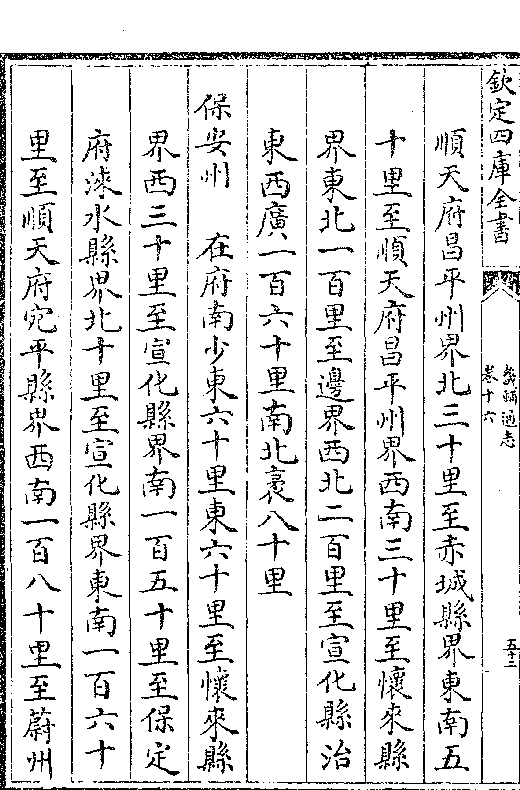 欽定四庫全書
畿輔通志
卷十六
五十三
順天府昌平州界北三十里至赤城縣界東南五
十里至順天府昌平州界西南三十里至懷來縣
界東北一百里至邊界西北二百里至宣化縣治
東西廣一百六十里南北袤八十里
保安州　在府南少東六十里東六十里至懷來縣
界西三十里至宣化縣界南一百五十里至保定
府淶水縣界北十里至宣化縣界東南一百六十
里至順天府宛平縣界西南一百八十里至蔚州